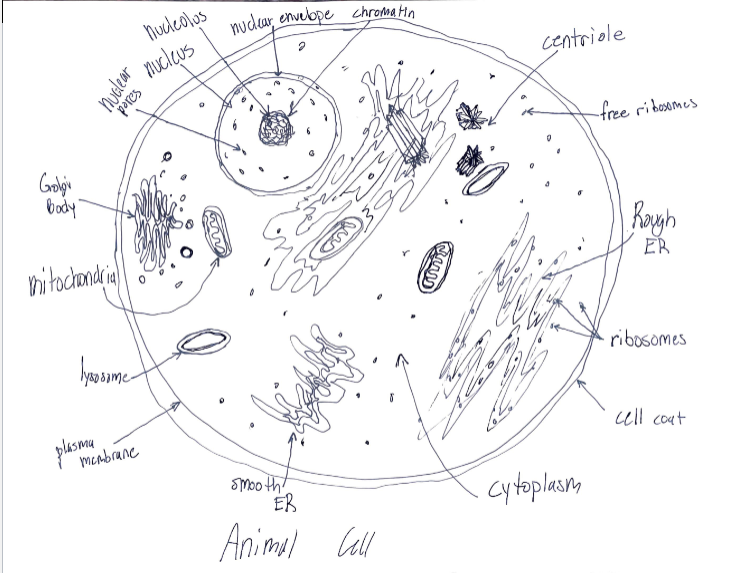 nucleolus
nuclear envelope
chromatin
nucleus
nuclear
pores
centriole
free ribosomes
Golgi
Body
Rough
ER
mitochondria
ribosomes
lysosome
cell coat
plasma
membrane
smooth
ER
cytoplasm
Animal Cell